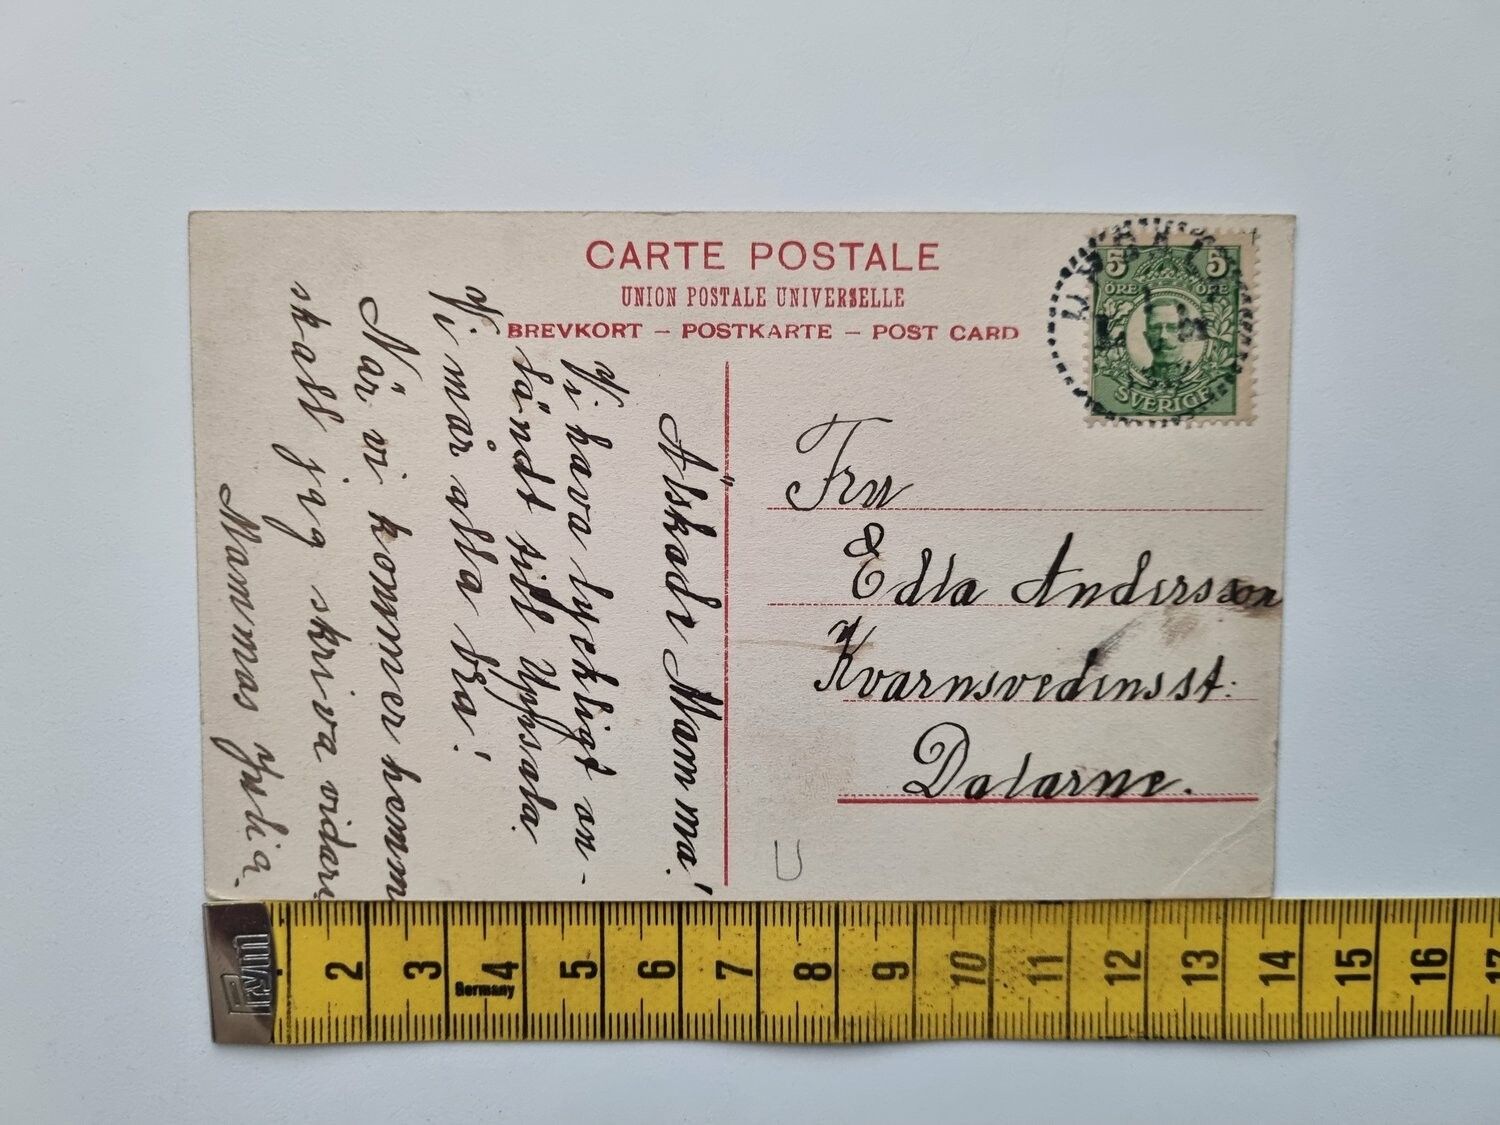 CARTE POSTALE
UNION POSTALE UNIVERSELLE
BREVKORT – POSTKARTE – POST CARD
5 5
ÖRE ÖRE
SVERIGE
Älskade Mamma!
Vi hava lyckligt an-
ländt till Uppsala.
Vi mår alla bra!
När vi kommer hemm
skall jag skriva vidare
Mammas Julia.
Fru
Edla Andersson
Kvarnsvedens st.
Dalarne.
U
Prym
2 3 4 5 6 7 8 9 10 11 12 13 14 15 16 17
Germany